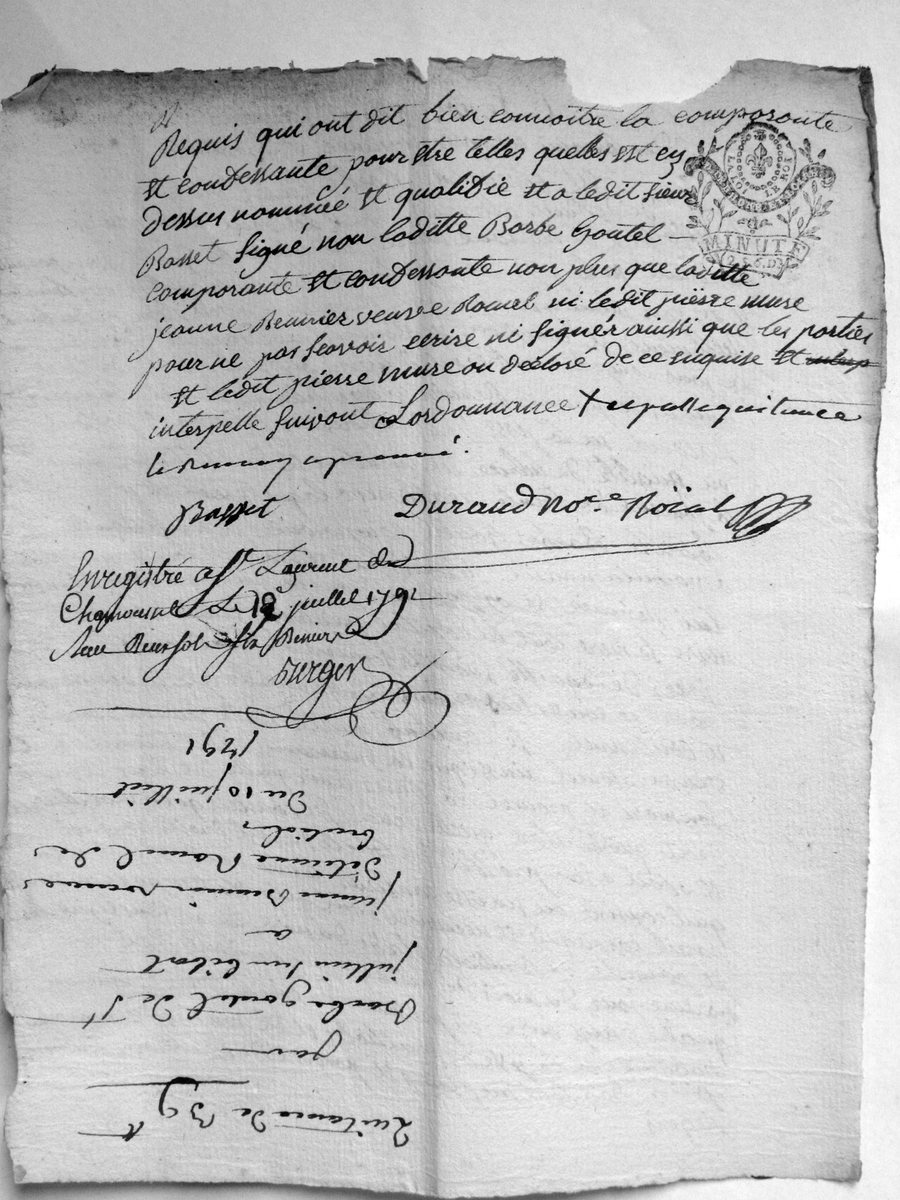 Requis qui ont dit bien connoitre la comparante
et confessante pour etre telles quelles est cy
dessus nommée et qualifie et a ledit sieur
Basset signé non laditte Barbe Goutel
comparante et confessante non plus que laditte
jeanne veuve ni ledit pierre mure
pour ne pas scavoir ecrire ni signér ainssi que les parties
et ledit pierre mure on déclaré de ce enquise et
interpelle suivant Lordonnance +
Basset Durand No.re Roïal
LA LOI LE ROI
MINUTE
Enregistré a St Laurent de
Chamousset Le 12e juillet 1791
Recu
Quitance de
par
Barbe goutel de St
jullien sur bibost
a
jeanne veuve
d'etienne de
Du 10 juilliet
1791